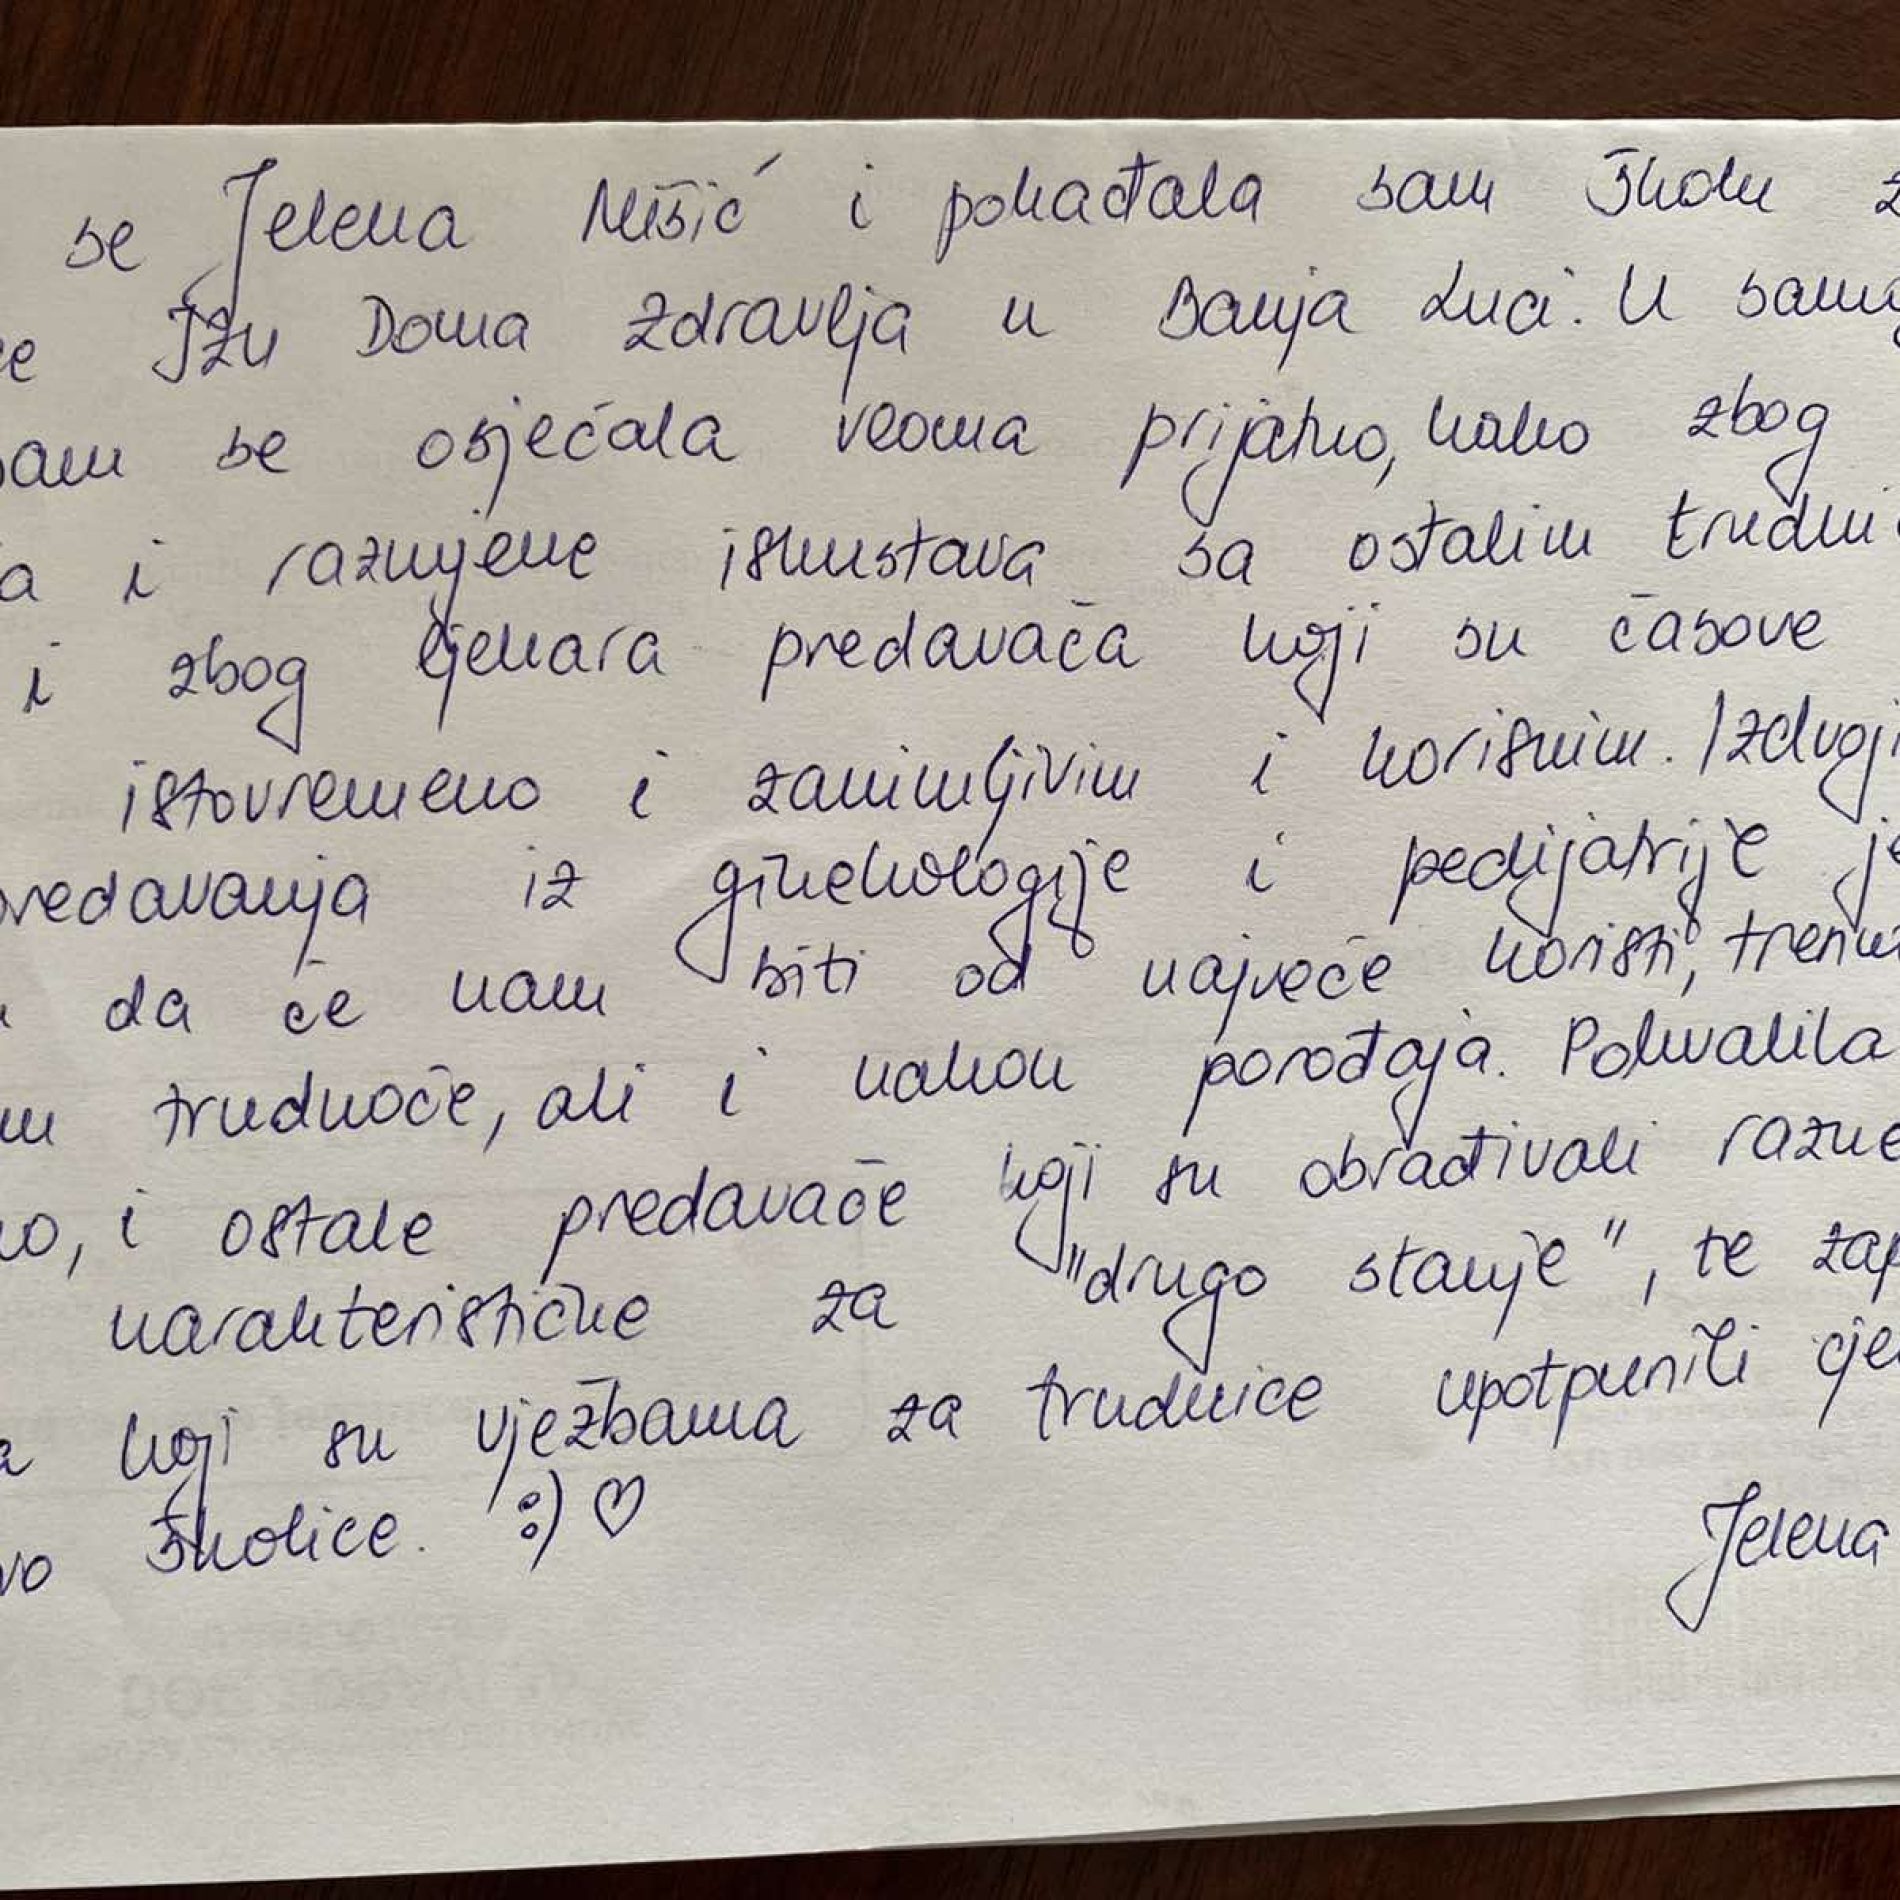 se Jelena Mišić i pohađala sam Školu z
ce JZU Doma zdravlja u Banja Luci. U samoj
sam se osjećala veoma prijatno, kako zbog
a i razmjene iskustava sa ostalim trudni
i zbog ljekara predavača koji su časove
istovremeno i zanimljivim i korisnim. Izdvoji
predavanja iz ginekologije i pedijatrije je
da će nam biti od najveće koristi, trenut
m trudnoće, ali i nakon porođaja. Pohvalila
no, i ostale predavače koji su obrađivali razne
karakteristične za "drugo stanje", te zap
a koji su vježbama za trudnice upotpunili cje
vo Školice. :) ♡
Jelena